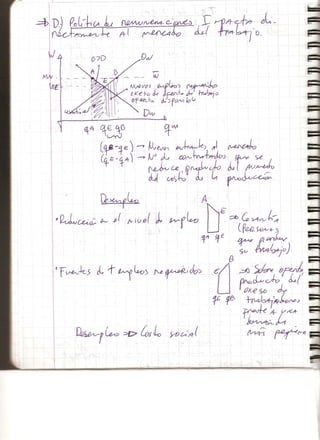 D) Política de remuneraciones. Impacto du-
rectamente al mercado del trabajo.
W
O>D
Ow
A
B
W
E
Nuevos empleos requeridos
exceso de oferta de trabajo
oferta disponible
Dw
qA qE qB
(qB-qE) → Nuevos entrantes al mercado
(qE-qA) → Nº de contratados que se
reduce producto del aumento
del costo de la producción
Desempleo
A
• Reducción en el nivel de empleo
E
⇒ Cesantía
(Personas
qA qE
que pierden
su trabajo)
B
• Fuentes de + empleos requeridos
E
⇒ Sobre oferta
producto del
exceso de
qE qB
trabajadores
frente a una
demanda
más pequeña
Desempleo ⇒ Costo social